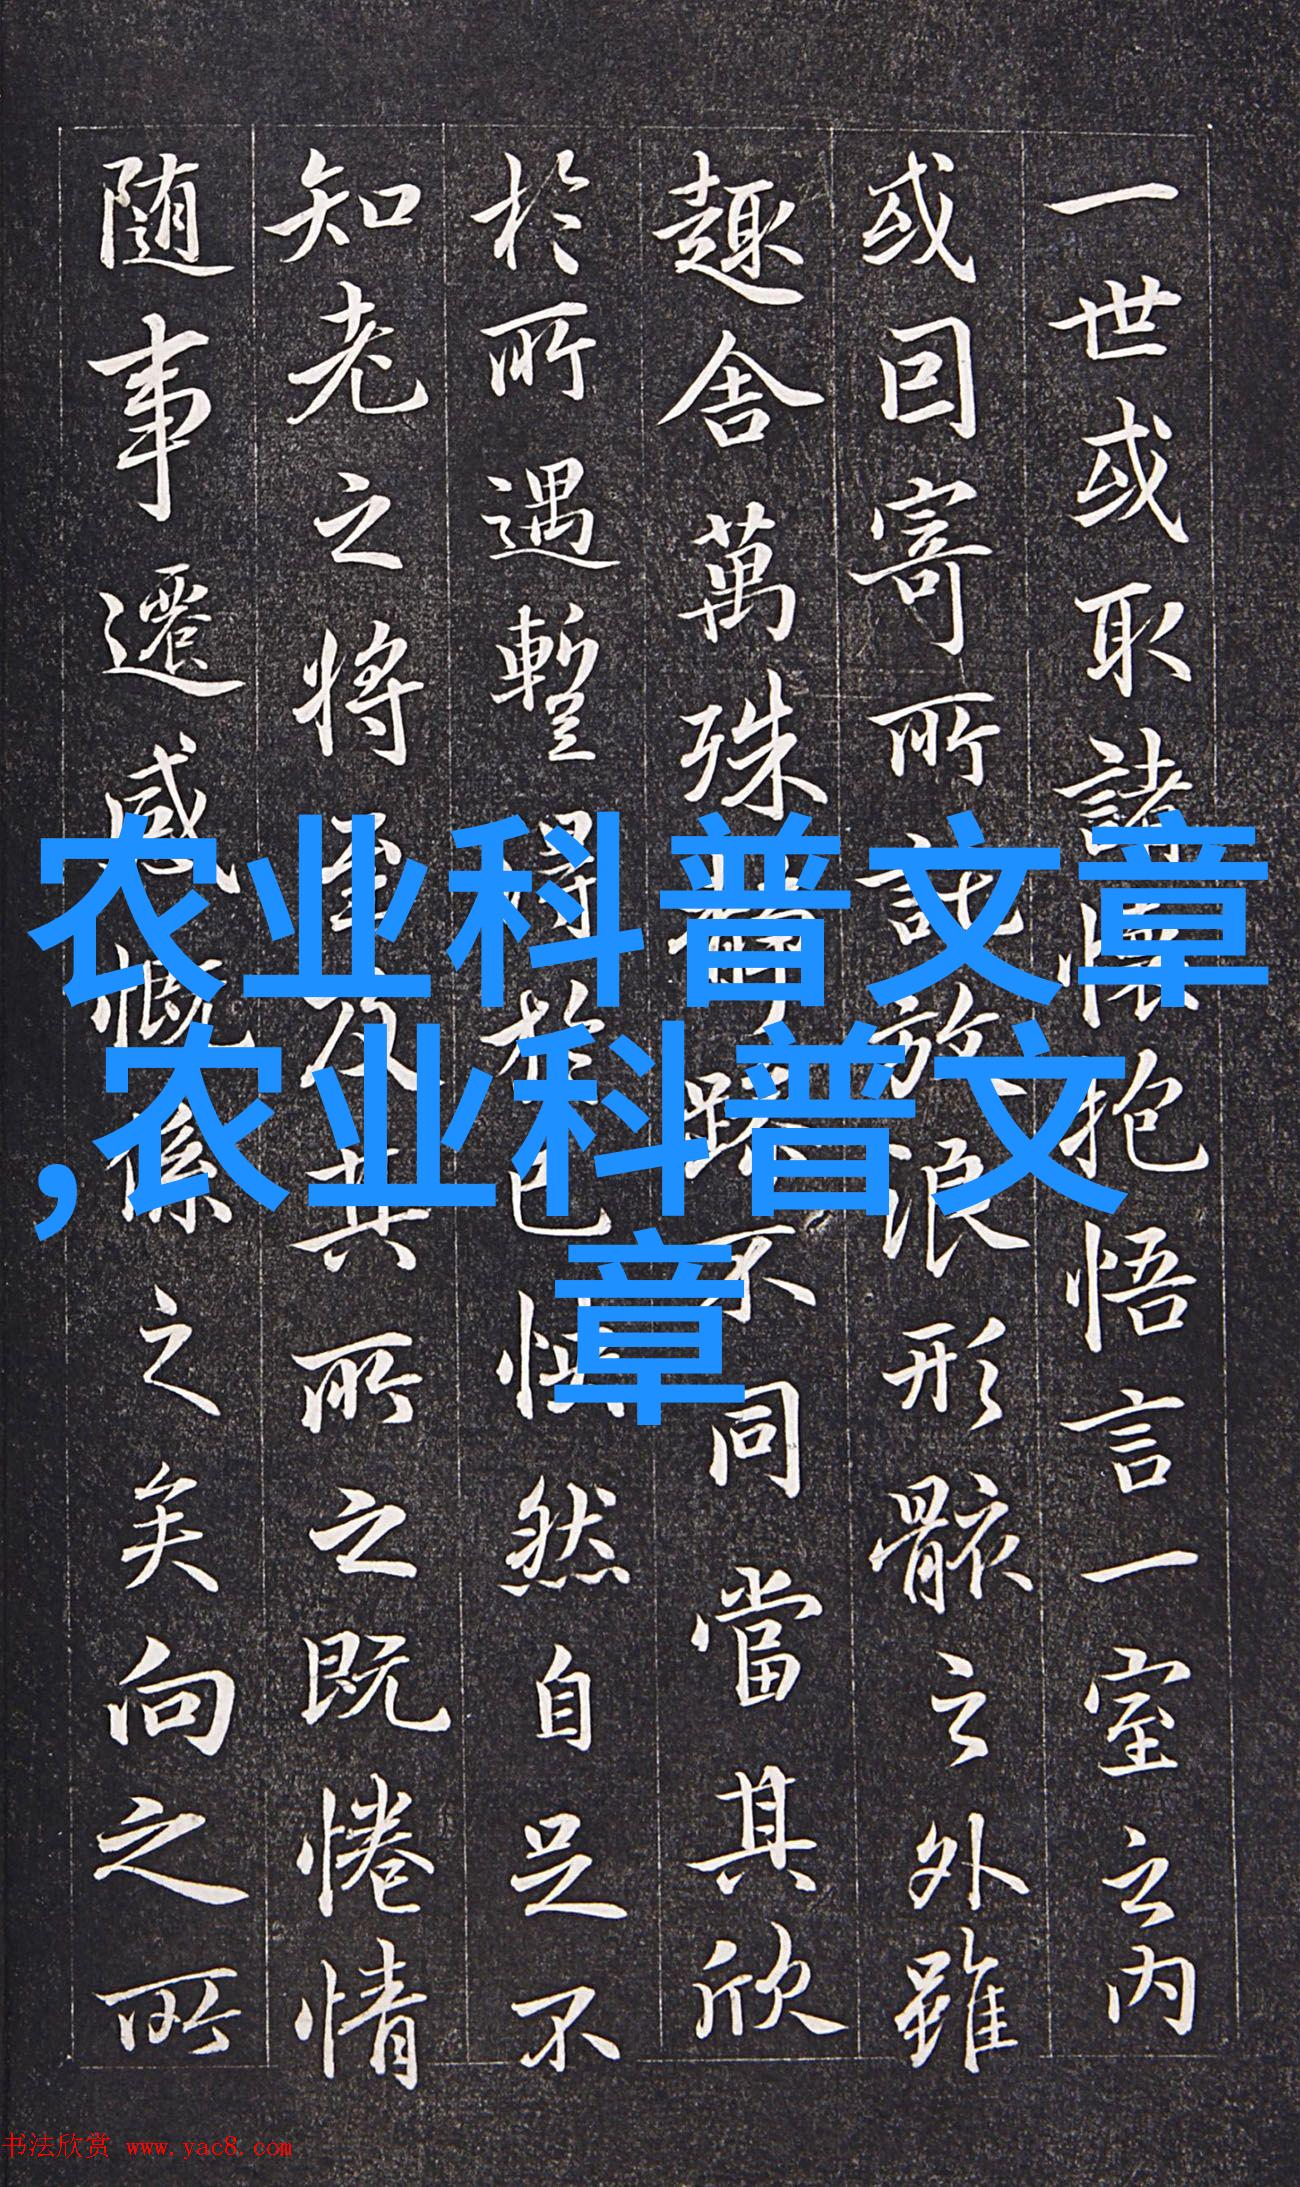 一世或取諸懷抱悟言一室之内
或因寄所託放浪形骸之外雖
趣舍萬殊静躁不同當其欣
於所遇暫得於己怏然自足不
知老之將至及其所之既惓情
随事遷感慨係之矣向之所
农业科普文章
,农业科普文
章
书法欣赏 www.yac8.com